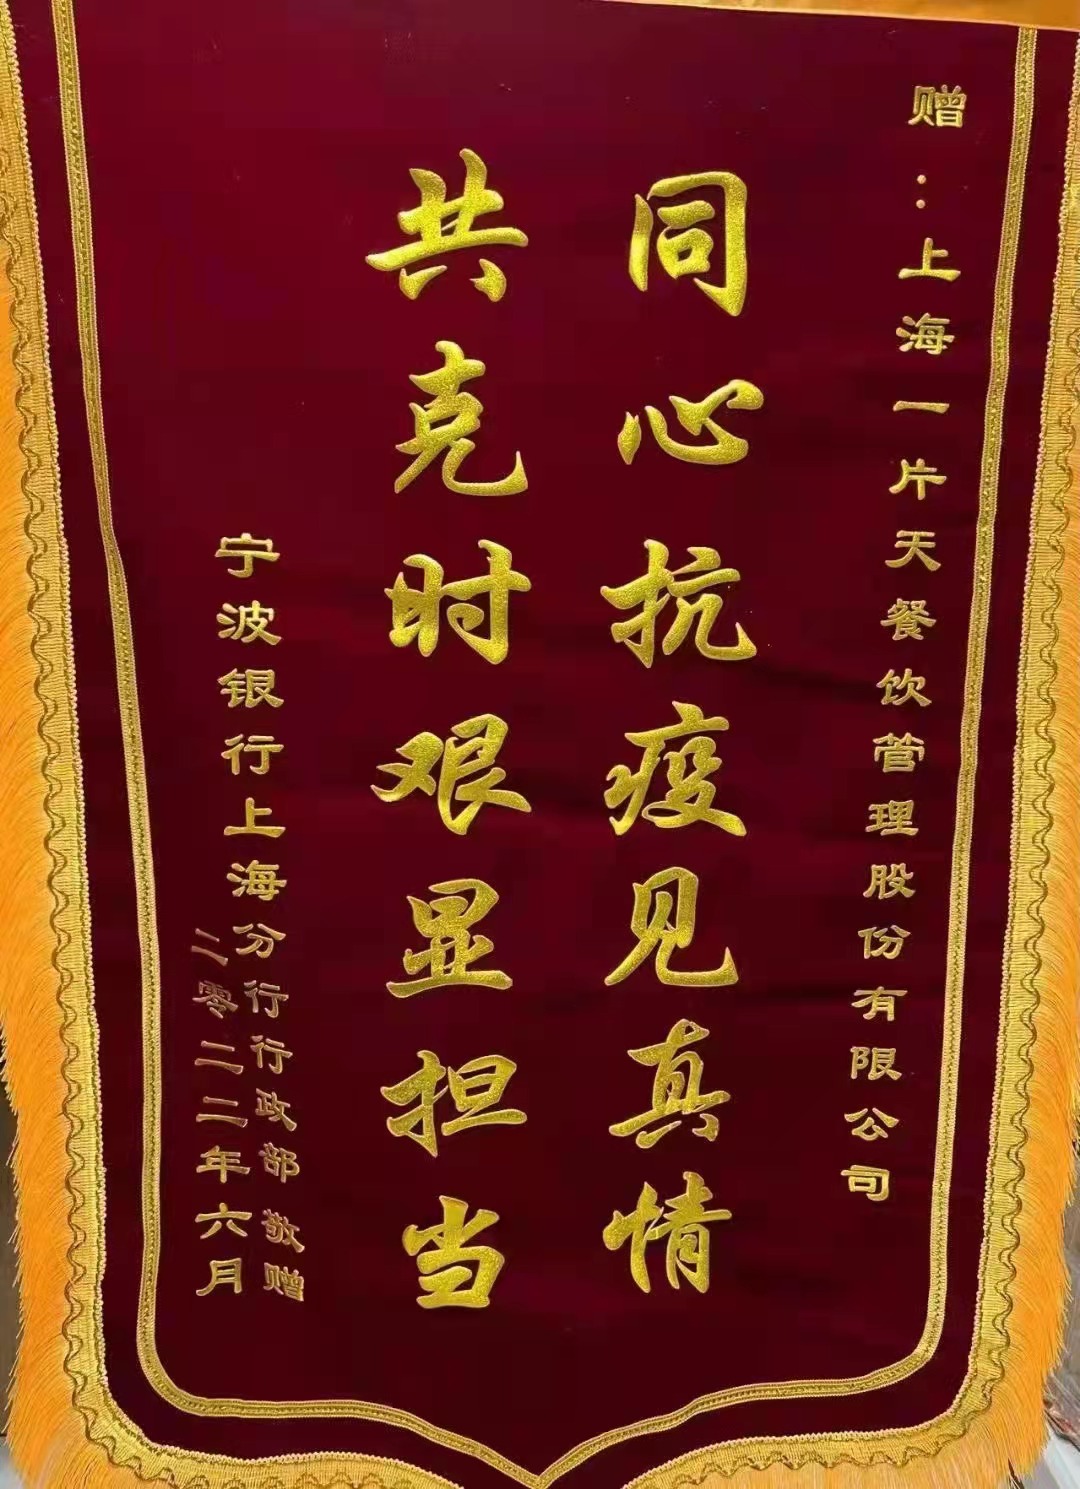 赠：上海一片天餐饮管理股份有限公司
同心抗疫见真情
共克时艰显担当
宁波银行上海分行行政部 敬赠
二零二二年六月